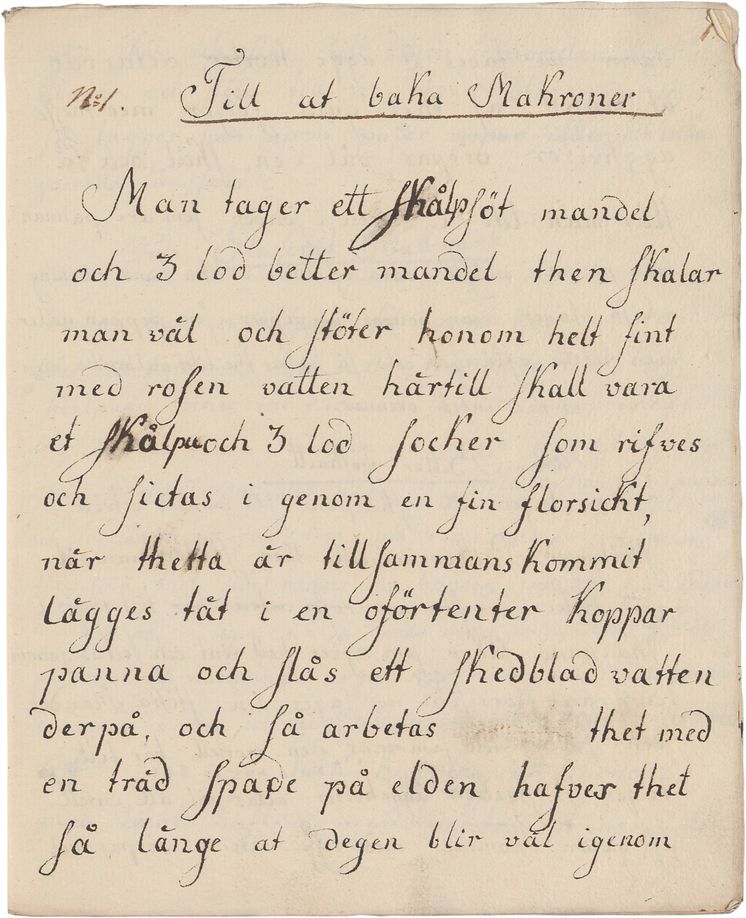 No 1. Till at baka Makroner
Man tager ett skålp söt mandel
och 3 lod better mandel then skalar
man väl och stöter honom helt fint
med rosen vatten härtill skall vara
et skålpu och 3 lod socker som rifves
och sictas i genom en fin florsickt,
når thetta är tillsammans kommit
lägges tåt i en oförtenter koppar
panna och slås ett skedblad vatten
derpå, och så arbetas thet med
en träd spade på elden hafver thet
så länge at degen blir väl igenom